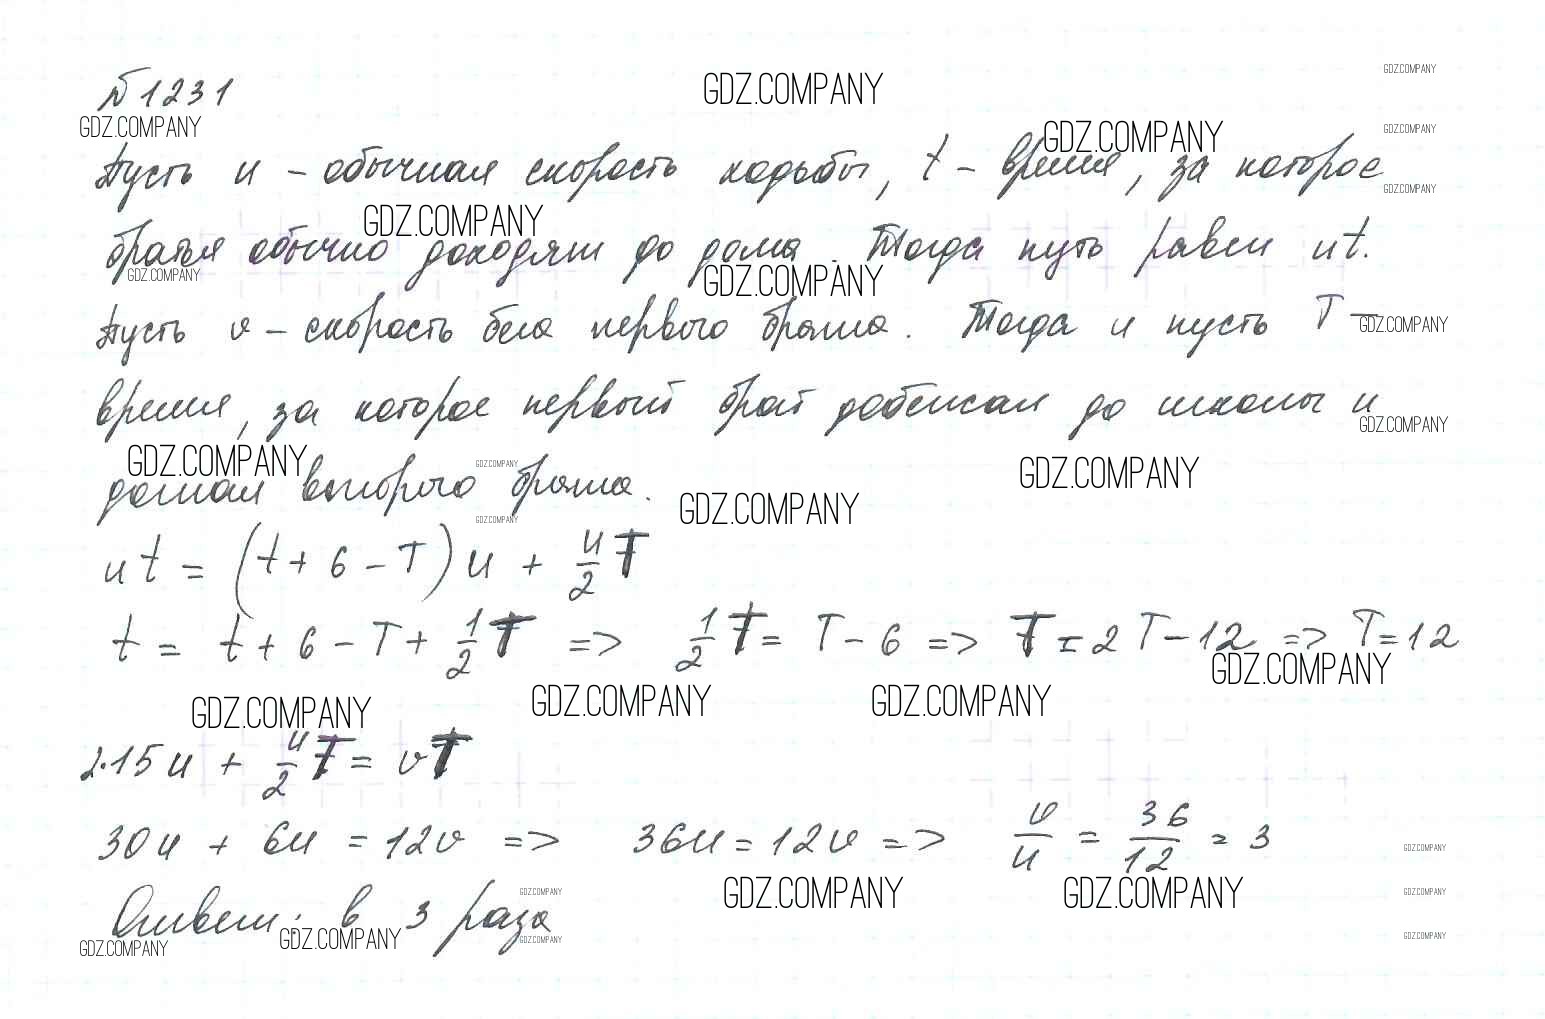 №1231
GDZ.COMPANY
GDZ.COMPANY
GDZ.COMPANY
GDZ.COMPANY
GDZ.COMPANY
GDZ.COMPANY
Пусть u – обычная скорость ходьбы, t – время, за которое
GDZ.COMPANY
GDZ.COMPANY
братья обычно доходят до дома. Тогда путь равен ut.
GDZ.COMPANY
GDZ.COMPANY
Пусть v – скорость бега первого брата. Тогда и пусть T –
GDZ.COMPANY
время, за которое первый брат добежал до школы и
GDZ.COMPANY
GDZ.COMPANY
GDZ.COMPANY
GDZ.COMPANY
догнал второго брата.
GDZ.COMPANY
GDZ.COMPANY
ut = (t + 6 – T) u + u/2 T
t = t + 6 – T + 1/2 T => 1/2 T = T – 6 => T = 2T – 12 => T = 12
GDZ.COMPANY
GDZ.COMPANY
GDZ.COMPANY
GDZ.COMPANY
2·15u + u/2 T = vT
30u + 6u = 12v => 36u = 12v => v/u = 36/12 = 3
GDZ.COMPANY
GDZ.COMPANY
GDZ.COMPANY
GDZ.COMPANY
GDZ.COMPANY
Ответ: в 3 раза
GDZ.COMPANY
GDZ.COMPANY
GDZ.COMPANY
GDZ.COMPANY